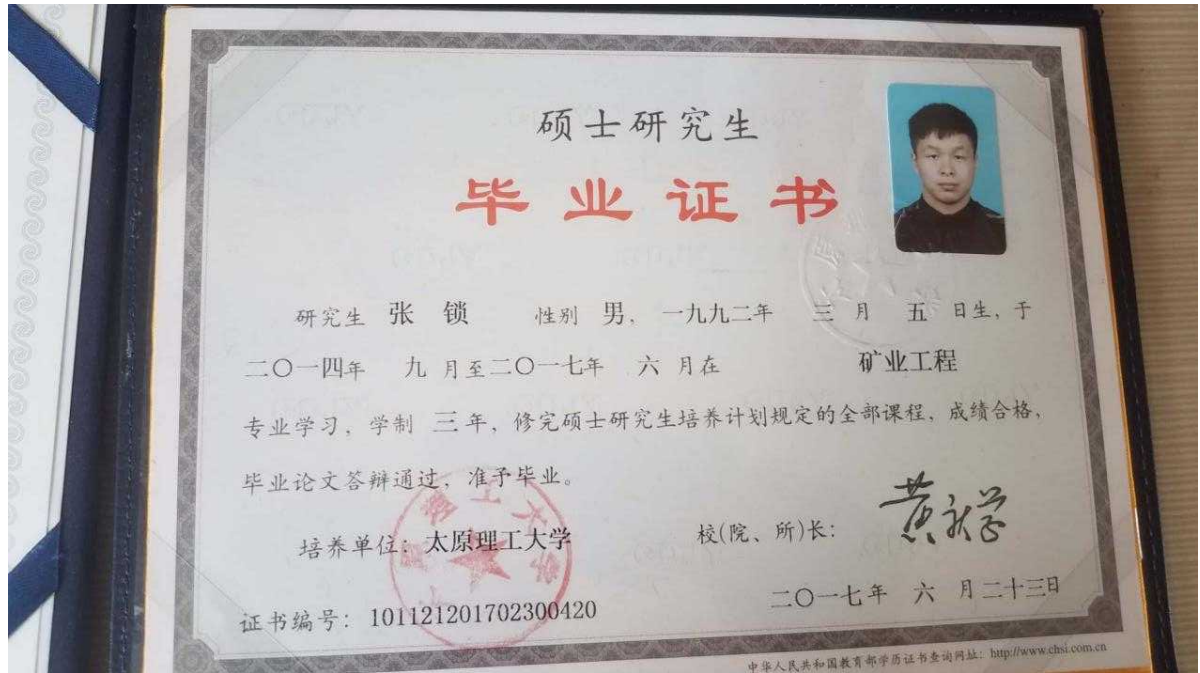 硕士研究生
毕业证书
研究生 张 锁 性别 男, 一九九二年 三 月 五 日生, 于
二〇一四年 九 月至二〇一七年 六 月在 矿业工程
专业学习, 学制 三 年, 修完硕士研究生培养计划规定的全部课程, 成绩合格,
毕业论文答辩通过, 准予毕业。
培养单位: 太原理工大学 校(院、所)长:
证书编号: 101121201702300420 二〇一七年 六 月二十三日
中华人民共和国教育部学历证书查询网址: http://www.chsi.com.cn